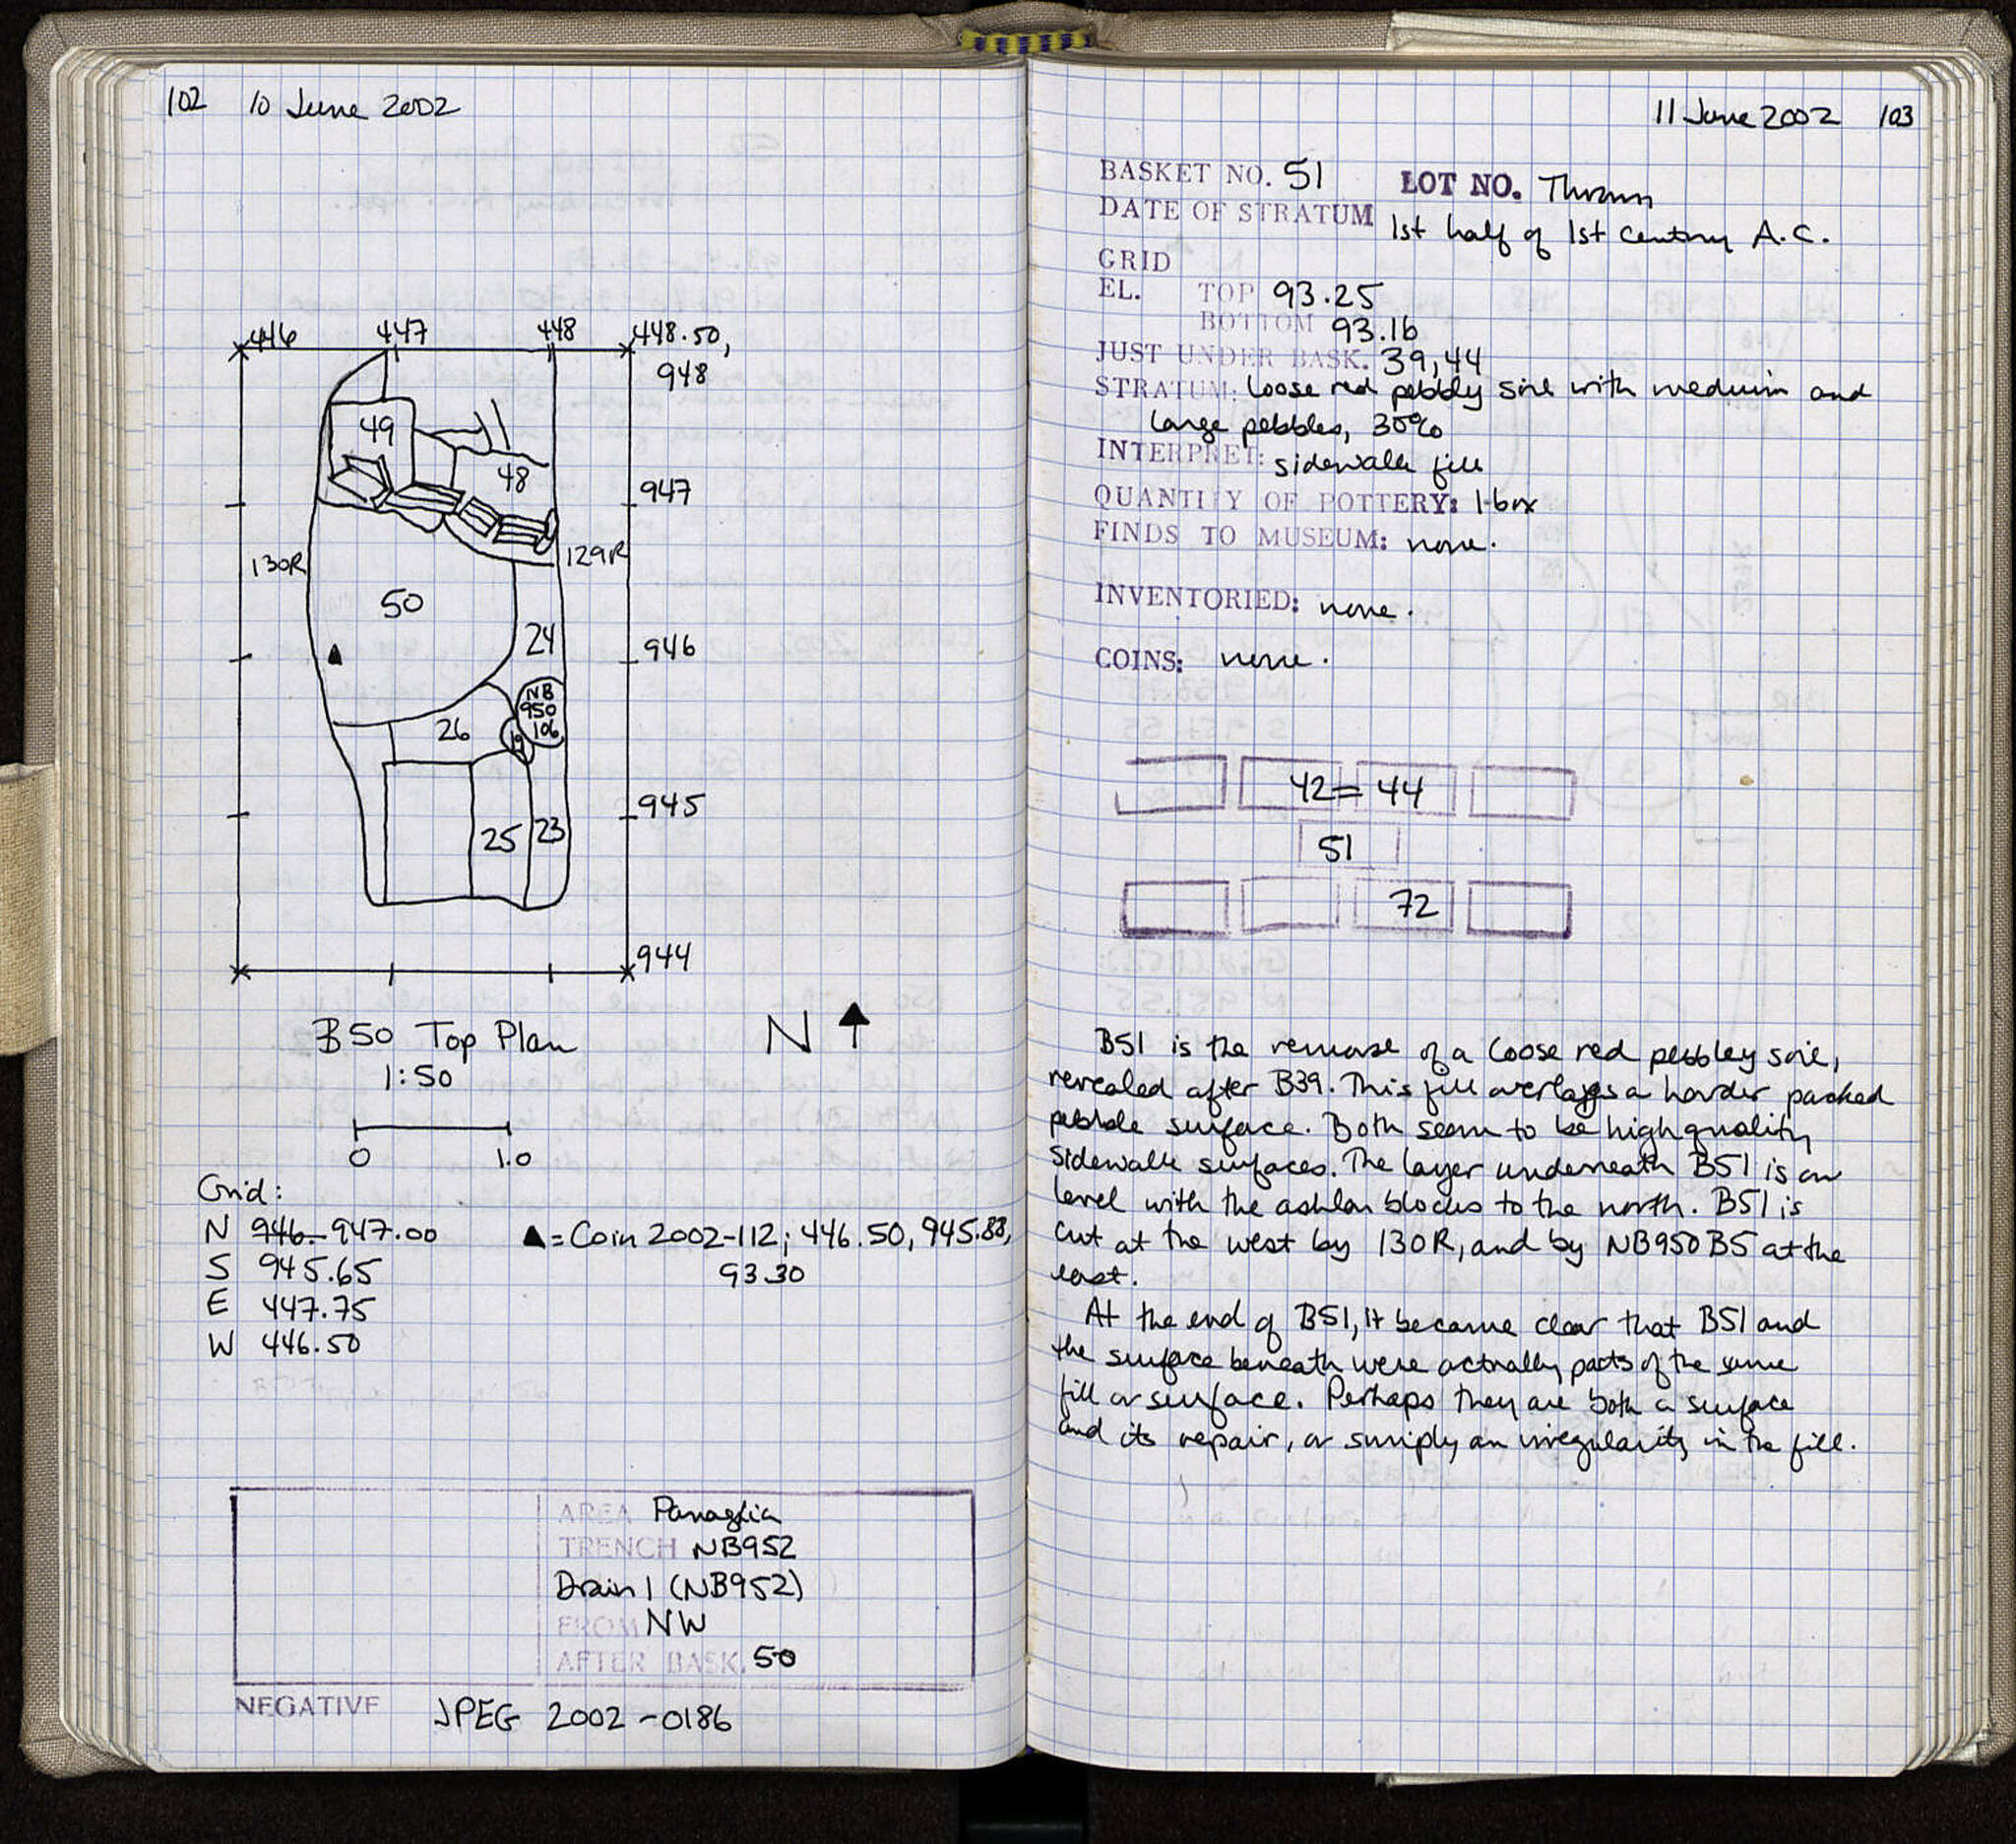 102 10 June 2002
446 447 448 448.50,
948
49
48
947
130R 129R
50
24
946
NB
950
106
26
19
945
25 23
944
B50 Top Plan
1:50
N
0 1.0
Grid:
N 946. 947.00
S 945.65
E 447.75
W 446.50
▲ = Coin 2002-112; 446.50, 945.88,
93.30
AREA Panaghia
TRENCH NB952
Drain 1 (NB952)
FROM NW
AFTER BASK. 50
NEGATIVE JPEG 2002-0186
11 June 2002 103
BASKET NO. 51 LOT NO. Thrown
DATE OF STRATUM 1st half of 1st century A.C.
GRID
EL. TOP 93.25
BOTTOM 93.16
JUST UNDER BASK. 39, 44
STRATUM: loose red pebbly soil with medium and
large pebbles, 30%
INTERPRET: sidewalk fill
QUANTITY OF POTTERY: 1 box
FINDS TO MUSEUM: none.
INVENTORIED: none.
COINS: none.
42 = 44
51
72
B51 is the removal of a loose red pebbley soil,
revealed after B39. This fill overlays a harder packed
pebble surface. Both seem to be high quality
sidewalk surfaces. The layer underneath B51 is on
level with the ashlar blocks to the north. B51 is
cut at the west by 130R, and by NB950 B5 at the
east.
At the end of B51, it became clear that B51 and
the surface beneath were actually parts of the same
fill or surface. Perhaps they are both a surface
and its repair, or simply an irregularity in the fill.